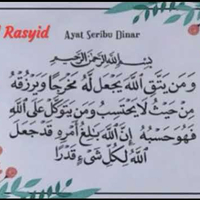 Rasyid
Ayat Seribu Dinar
بِسْمِ اللهِ الرَّحْمٰنِ الرَّحِيْمِ
وَمَن يَتَّقِ اللَّهَ يَجْعَل لَّهُ مَخْرَجًا وَيَرْزُقْهُ
مِنْ حَيْثُ لَا يَحْتَسِبُ وَمَن يَتَوَكَّلْ عَلَى اللَّهِ
فَهُوَ حَسْبُهُ إِنَّ اللَّهَ بَالِغُ أَمْرِهِ قَدْ جَعَلَ
اللَّهُ لِكُلِّ شَيْءٍ قَدْرًا